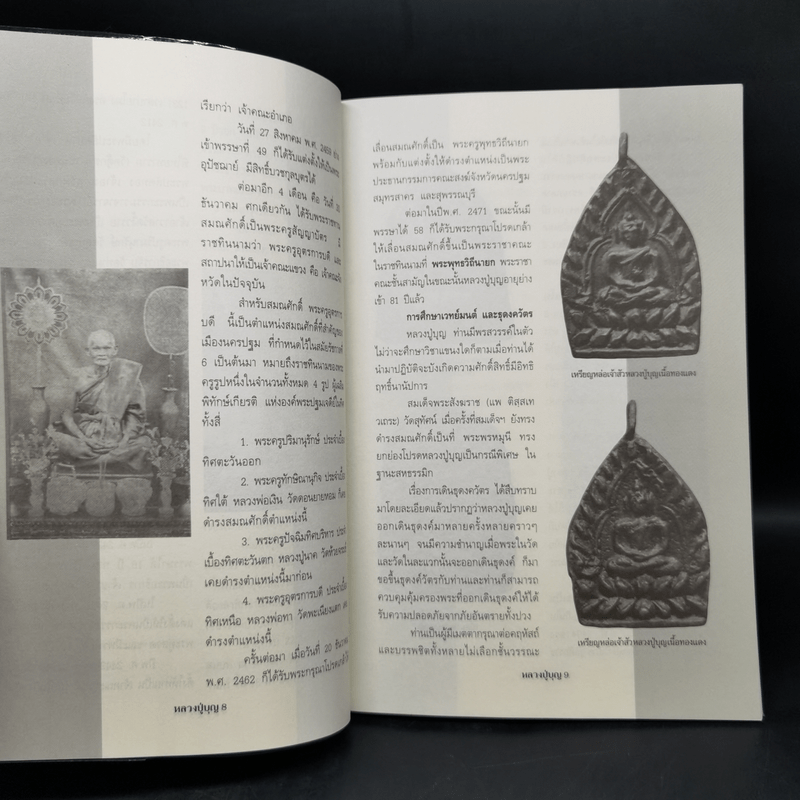 เรียกว่า เจ้าคณะอำเภอ
วันที่ 27 สิงหาคม พ.ศ.
เข้าพรรษาที่ 49 ก็ได้รับแต่งตั้งให้เป็นพระ
อุปัชฌาย์ มีสิทธิ์บวชกุลบุตรได้
ต่อมาอีก 4 เดือน คือ วันที่
ธันวาคม ศกเดียวกัน ได้รับพระราชทาน
สมณศักดิ์เป็นพระครูสัญญาบัตร มี
ราชทินนามว่า พระครูอุตรการบดี และ
สถาปนาให้เป็นเจ้าคณะแขวง คือ เจ้าคณะจัง
หวัดในปัจจุบัน
สำหรับสมณศักดิ์ พระครูอุตรการ
บดี นี้เป็นตำแหน่งสมณศักดิ์ที่สำคัญของ
เมืองนครปฐม ที่กำหนดไว้ในสมัยรัชกาลที่
6 เป็นต้นมา หมายถึงราชทินนามของพระ
ครูรูปหนึ่งในจำนวนทั้งหมด 4 รูป
พิทักษ์เกียรติ แห่งองค์พระปฐมเจดีย์ในทิศ
ทั้งสี่
1. พระครูปริมานุรักษ์ ประจำเบื้อง
ทิศตะวันออก
2. พระครูทักษิณานุกิจ ประจำเบื้อง
ทิศใต้ หลวงพ่อเงิน วัดดอนยายหอม ก็เคย
ดำรงสมณศักดิ์ตำแหน่งนี้
3. พระครูปัจฉิมทิศบริหาร ประจำ
เบื้องทิศตะวันตก หลวงปู่นาค วัดห้วยจระเข้
เคยดำรงตำแหน่งนี้มาก่อน
4. พระครูอุตรการบดี ประจำเบื้อง
ทิศเหนือ หลวงพ่อทา วัดพะเนียงแตก เคย
ดำรงตำแหน่งนี้
ครั้นต่อมา เมื่อวันที่ 20 ธันวาคม
พ.ศ. 2462 ก็ได้รับพระกรุณาโปรดเกล้า
หลวงปู่บุญ 8
เลื่อนสมณศักดิ์เป็น พระครูพุทธวิถีนายก
พร้อมกับแต่งตั้งให้ดำรงตำแหน่งเป็นพระ
ประธานกรรมการคณะสงฆ์จังหวัดนครปฐม
สมุทรสาคร และสุพรรณบุรี
ต่อมาในปีพ.ศ. 2471 ขณะนั้นมี
พรรษาได้ 58 ก็ได้รับพระกรุณาโปรดเกล้า
ให้เลื่อนสมณศักดิ์ขึ้นเป็นพระราชาคณะ
ในราชทินนามที่ พระพุทธวิถีนายก พระราชา
คณะชั้นสามัญในขณะนั้นหลวงปู่บุญอายุย่าง
เข้า 81 ปีแล้ว
การศึกษาเวทย์มนต์ และธุดงควัตร
หลวงปู่บุญ ท่านมีพรสวรรค์ในตัว
ไม่ว่าจะศึกษาวิชาแขนงใดก็ตามเมื่อท่านได้
นำมาปฏิบัติจะบังเกิดความศักดิ์สิทธิ์มีอิทธิ
ฤทธิ์นานัปการ
สมเด็จพระสังฆราช (แพ ติสฺสเท
วเถระ) วัดสุทัศน์ เมื่อครั้งที่สมเด็จฯ ยังทรง
ดำรงสมณศักดิ์เป็นที่ พระพรหมมุนี ทรง
ยกย่องโปรดหลวงปู่บุญเป็นกรณีพิเศษ ใน
ฐานะสหธรรมิก
เรื่องการเดินธุดงควัตร ได้สืบทราบ
มาโดยละเอียดแล้วปรากฏว่าหลวงปู่บุญเคย
ออกเดินธุดงค์มาหลายครั้งหลายคราวๆ
ละนานๆ จนมีความชำนาญเมื่อพระในวัด
และวัดในละแวกนั้นจะออกเดินธุดงค์ ก็มา
ขอขึ้นธุดงค์วัตรกับท่านและท่านก็สามารถ
ควบคุมคุ้มครองพระที่ออกเดินธุดงค์ให้ได้
รับความปลอดภัยจากภัยอันตรายทั้งปวง
ท่านเป็นผู้มีเมตตากรุณาต่อคฤหัสถ์
และบรรพชิตทั้งหลายไม่เลือกชั้นวรรณะ
เหรียญหล่อเจ้าสัวหลวงปู่บุญเนื้อทองแดง
เหรียญหล่อเจ้าสัวหลวงปู่บุญเนื้อทองแดง
หลวงปู่บุญ 9